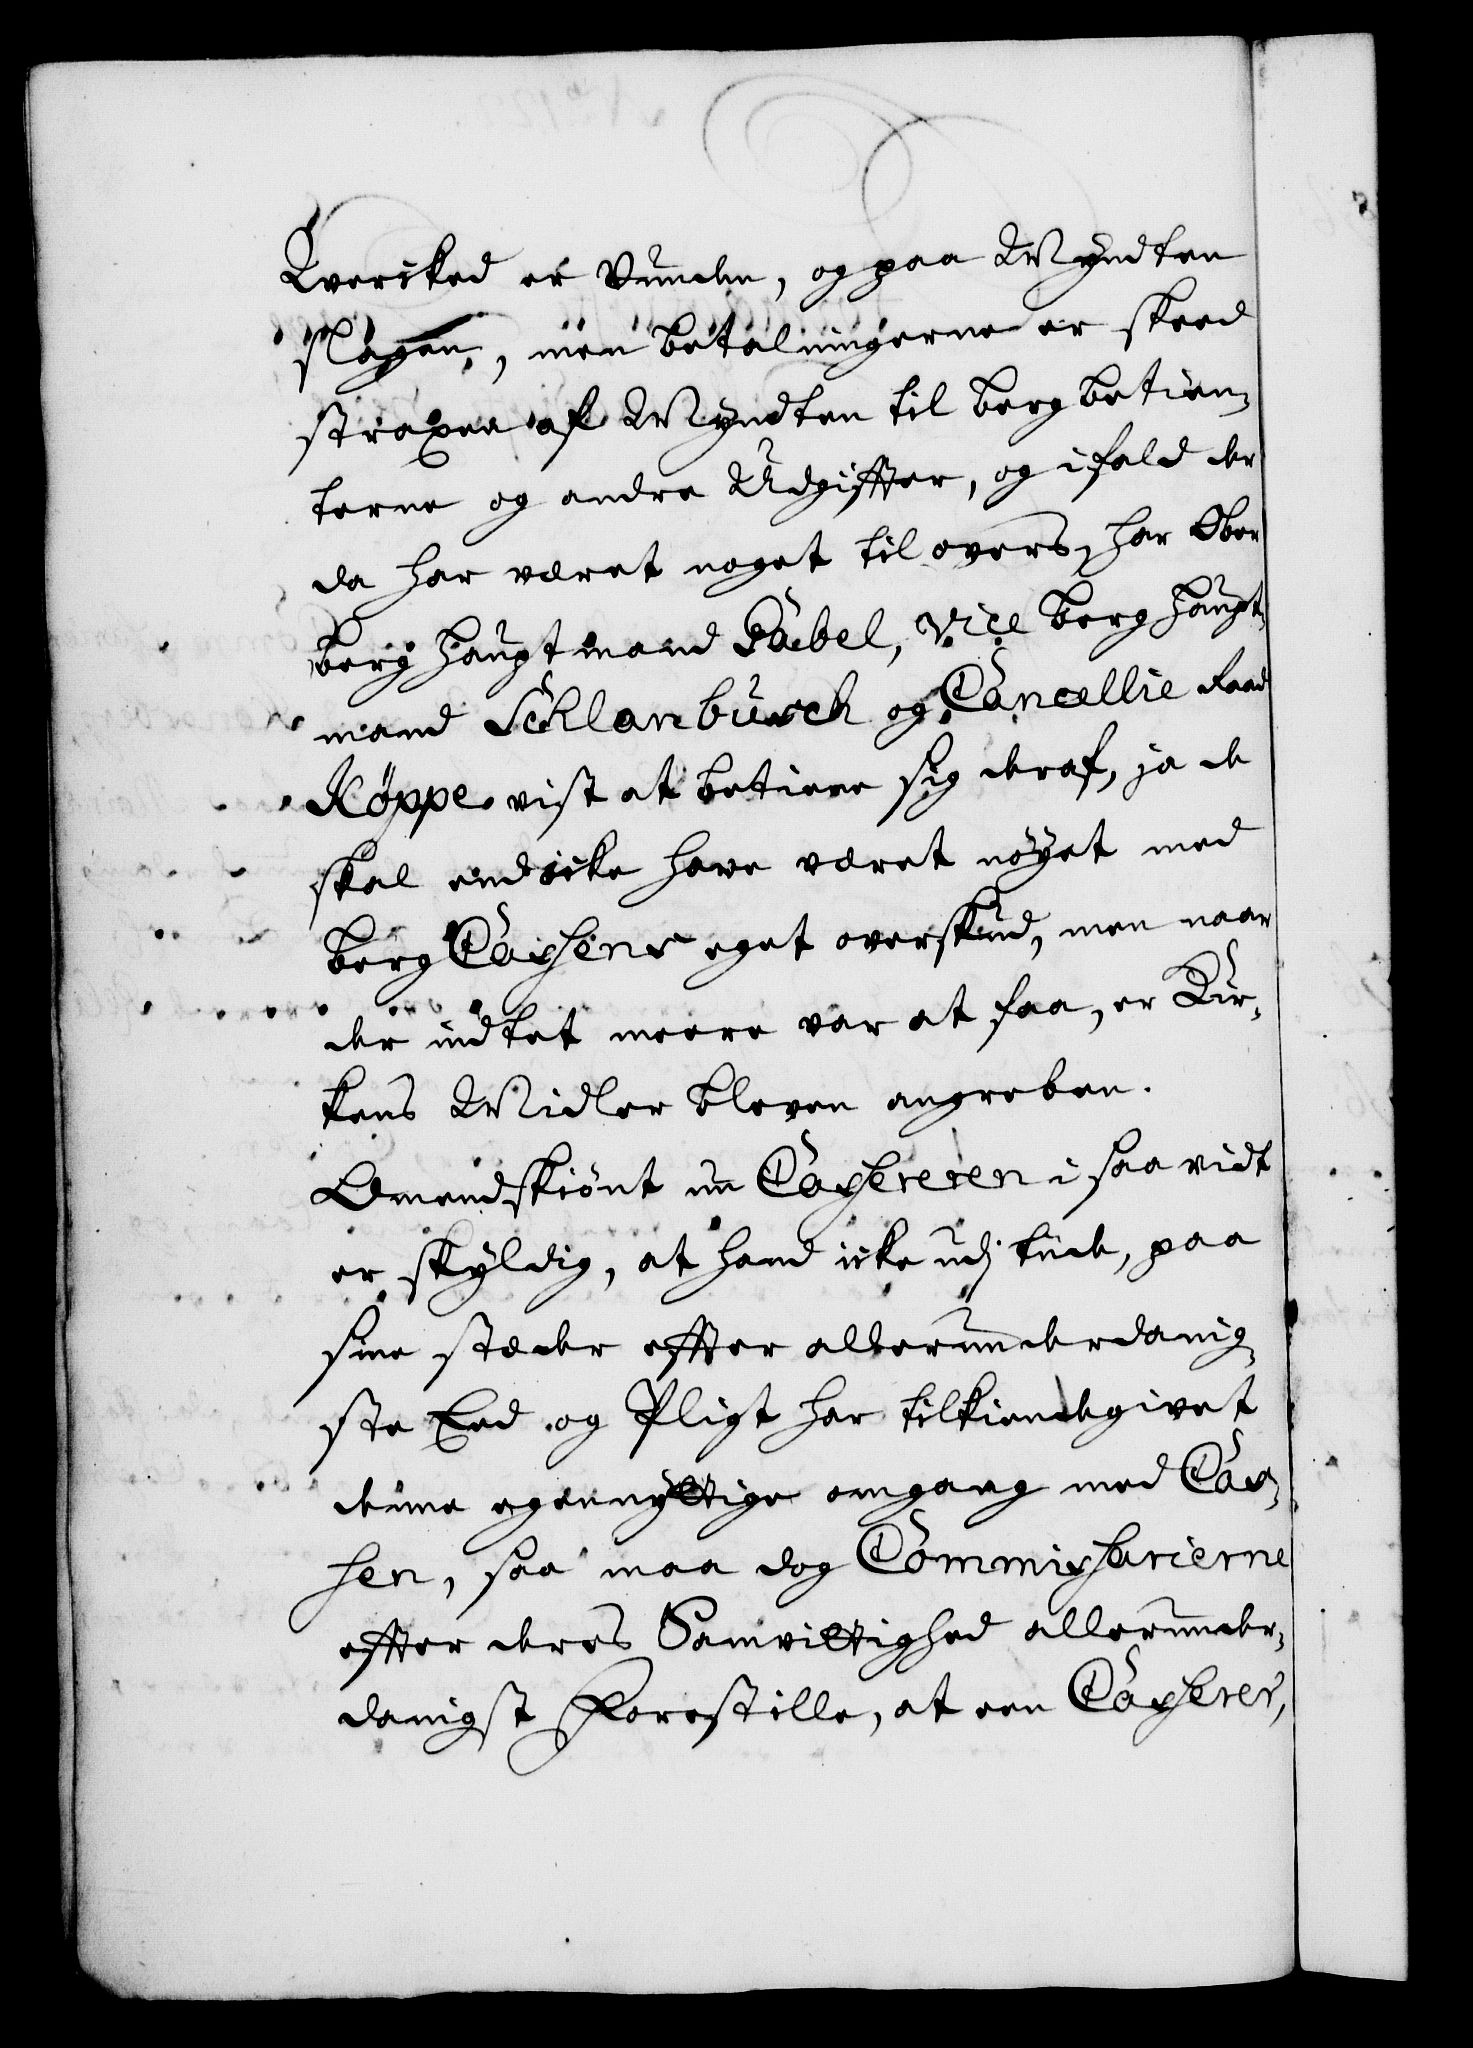 Qvorsked er Vunden, og paa Myndten
slagen, men betalningerne er skeed
straxen af Myndten til berg betien-
terne og andre Udgiffter, og ifald der
da har været noget til overs, har Ober
berg Hauptmand Babel, Vice berg Haupt-
mand Schlanbusch og Cancellie Raad
Köppe vist at betiene sig deraf, ja de
skal end icke have været nöyet med
berg Cassens eget overskud, men naar
der indtet meere var at faa, er Kir-
kens Midler bleven angreben.
Omendskiönt nu Cassereren i saa vidt
er skyldig, at hand icke udj tiide, paa
sine stæder effter allerunderdanig-
ste Eed og Pligt har tilkiendegivet
denne egennyttige omgang med Cas-
sen, saa maa dog Commissarierne
effter deres Samvittighed allerunder-
danigst Forestille, at een Casserer,